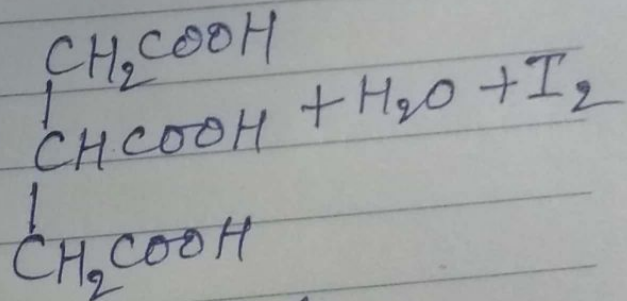 CH₂COOH
|
CHCOOH + H₂O + I₂
|
CH₂COOH